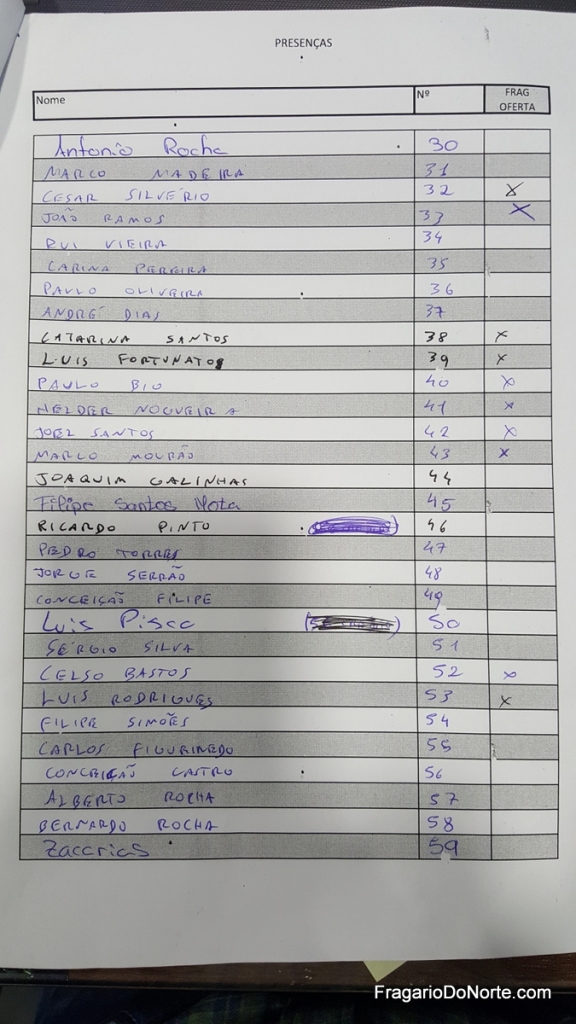 PRESENÇAS
Nome Nº FRAG OFERTA
Antonio Rocha 30
MARCO MADEIRA 31
CESAR SILVÉRIO 32 X
JOÃO RAMOS 33 X
RUI VIEIRA 34
CARINA PEREIRA 35
PAULO OLIVEIRA 36
ANDRÉ DIAS 37
CATARINA SANTOS 38 X
LUIS FORTUNATO 39 X
PAULO BIO 40 X
HELDER NOGUEIRA 41 X
JOEL SANTOS 42 X
MARCO MOURÃO 43 X
JOAQUIM GALINHAS 44
Filipe Santos Mota 45
RICARDO PINTO 46
PEDRO TORRES 47
JORGE SERRÃO 48
CONCEIÇÃO FILIPE 49
Luis Pisco 50
SÉRGIO SILVA 51
CELSO BASTOS 52 X
LUIS RODRIGUES 53 X
FILIPE SIMÕES 54
CARLOS FIGUEIREDO 55
CONCEIÇÃO CASTRO 56
ALBERTO ROCHA 57
BERNARDO ROCHA 58
Zaccarias 59
FragarioDoNorte.com